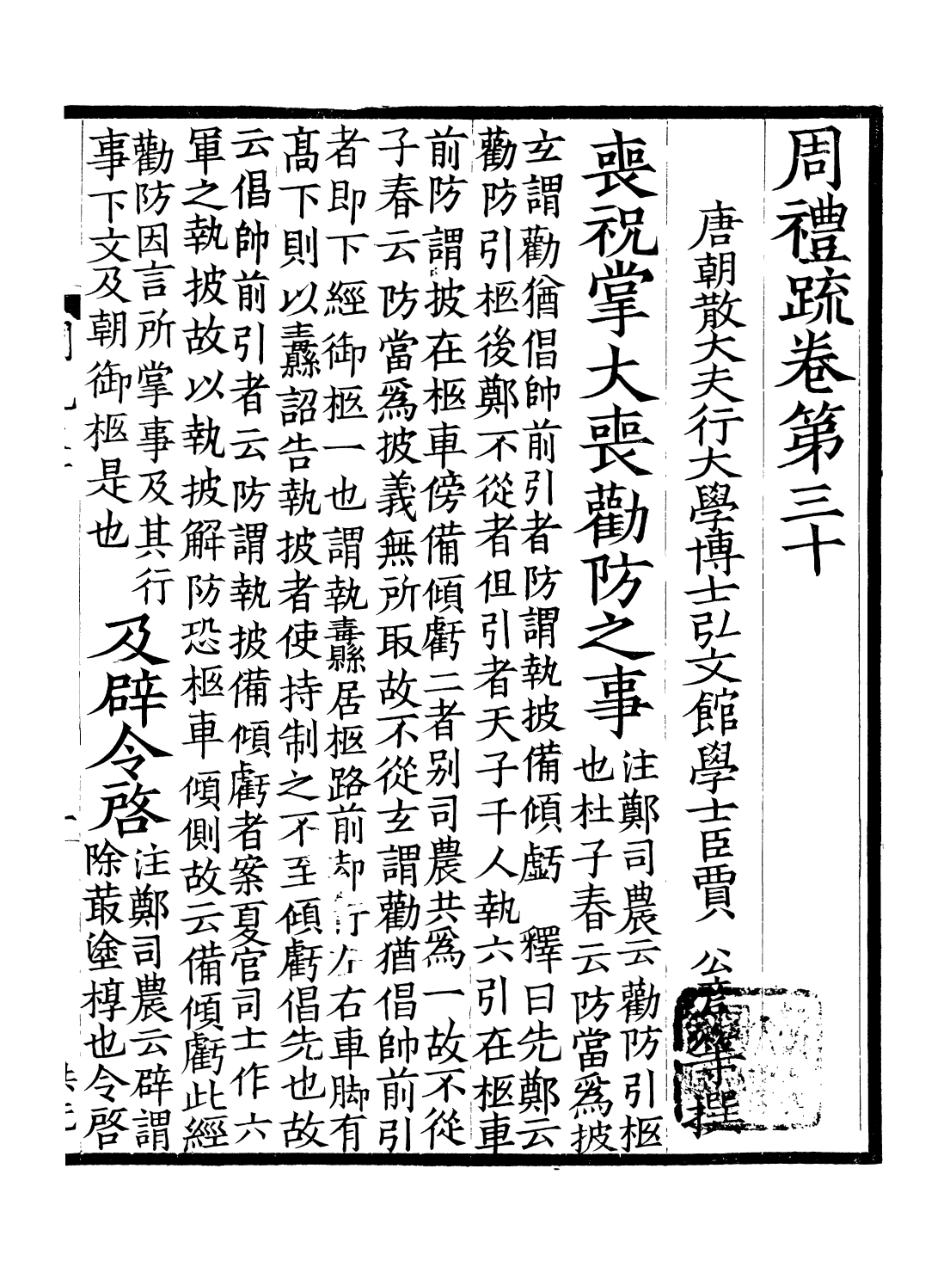 周禮疏卷第三十
唐朝散大夫行大學博士弘文館學士臣賈　公彥等撰
喪祝掌大喪勸防之事注鄭司農云勸防引柩
也杜子春云防當爲披
玄謂勸猶倡帥前引者防謂執披備傾虧　釋曰先鄭云
勸防引柩後鄭不從者但引者天子千人執六引在柩車
前防謂披在柩車傍備傾虧二者别司農共爲一故不從
子春云防當爲披義無所取故不從玄謂勸猶倡帥前引
者即下經御柩一也謂執纛居柩路前却行左右車脚有
高下則以纛詔告執披者使持制之不至傾虧倡先也故
云倡帥前引者云防謂執披備傾虧者案夏官司士作六
軍之執披故以執披解防恐柩車傾側故云備傾虧此經
勸防因言所掌事及其行
事下文及朝御柩是也
及辟令啓注鄭司農云辟謂
除菆塗椁也令啓